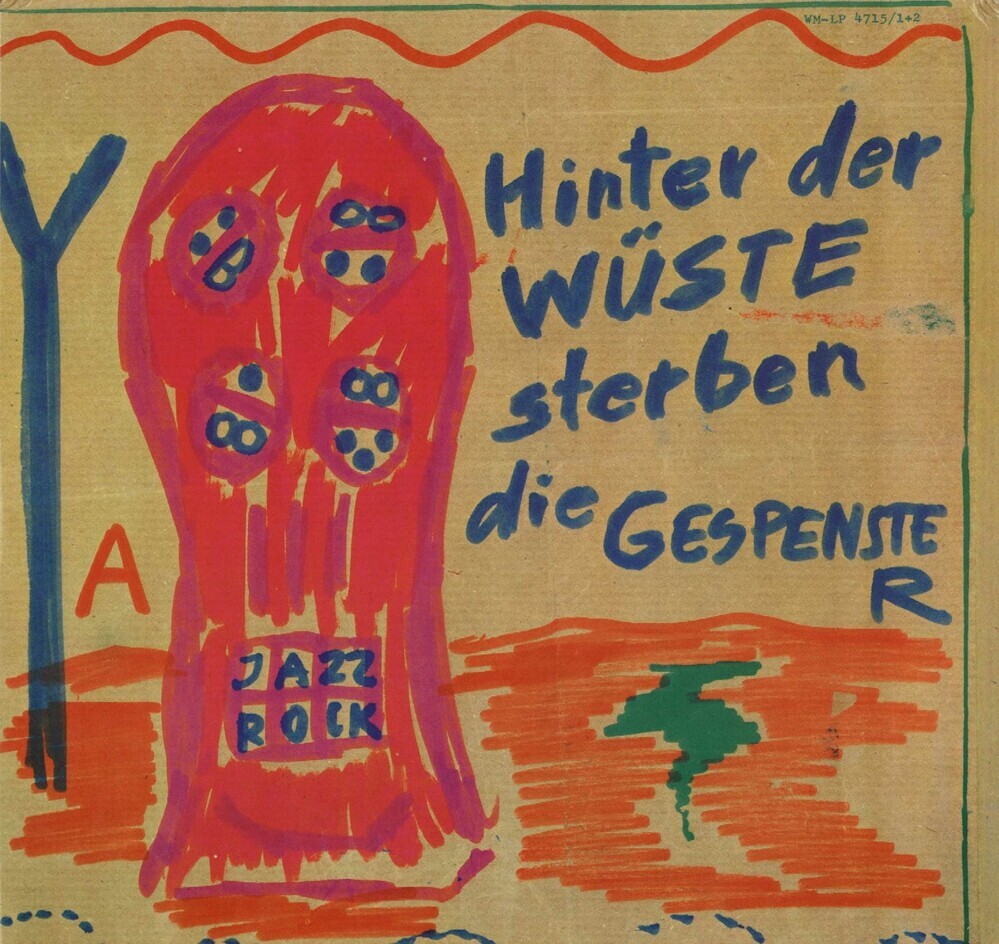 WM-LP 4715/1+2
Hinter der
WÜSTE
sterben
die GESPENSTE
R
Y
A
JAZZ
ROCK